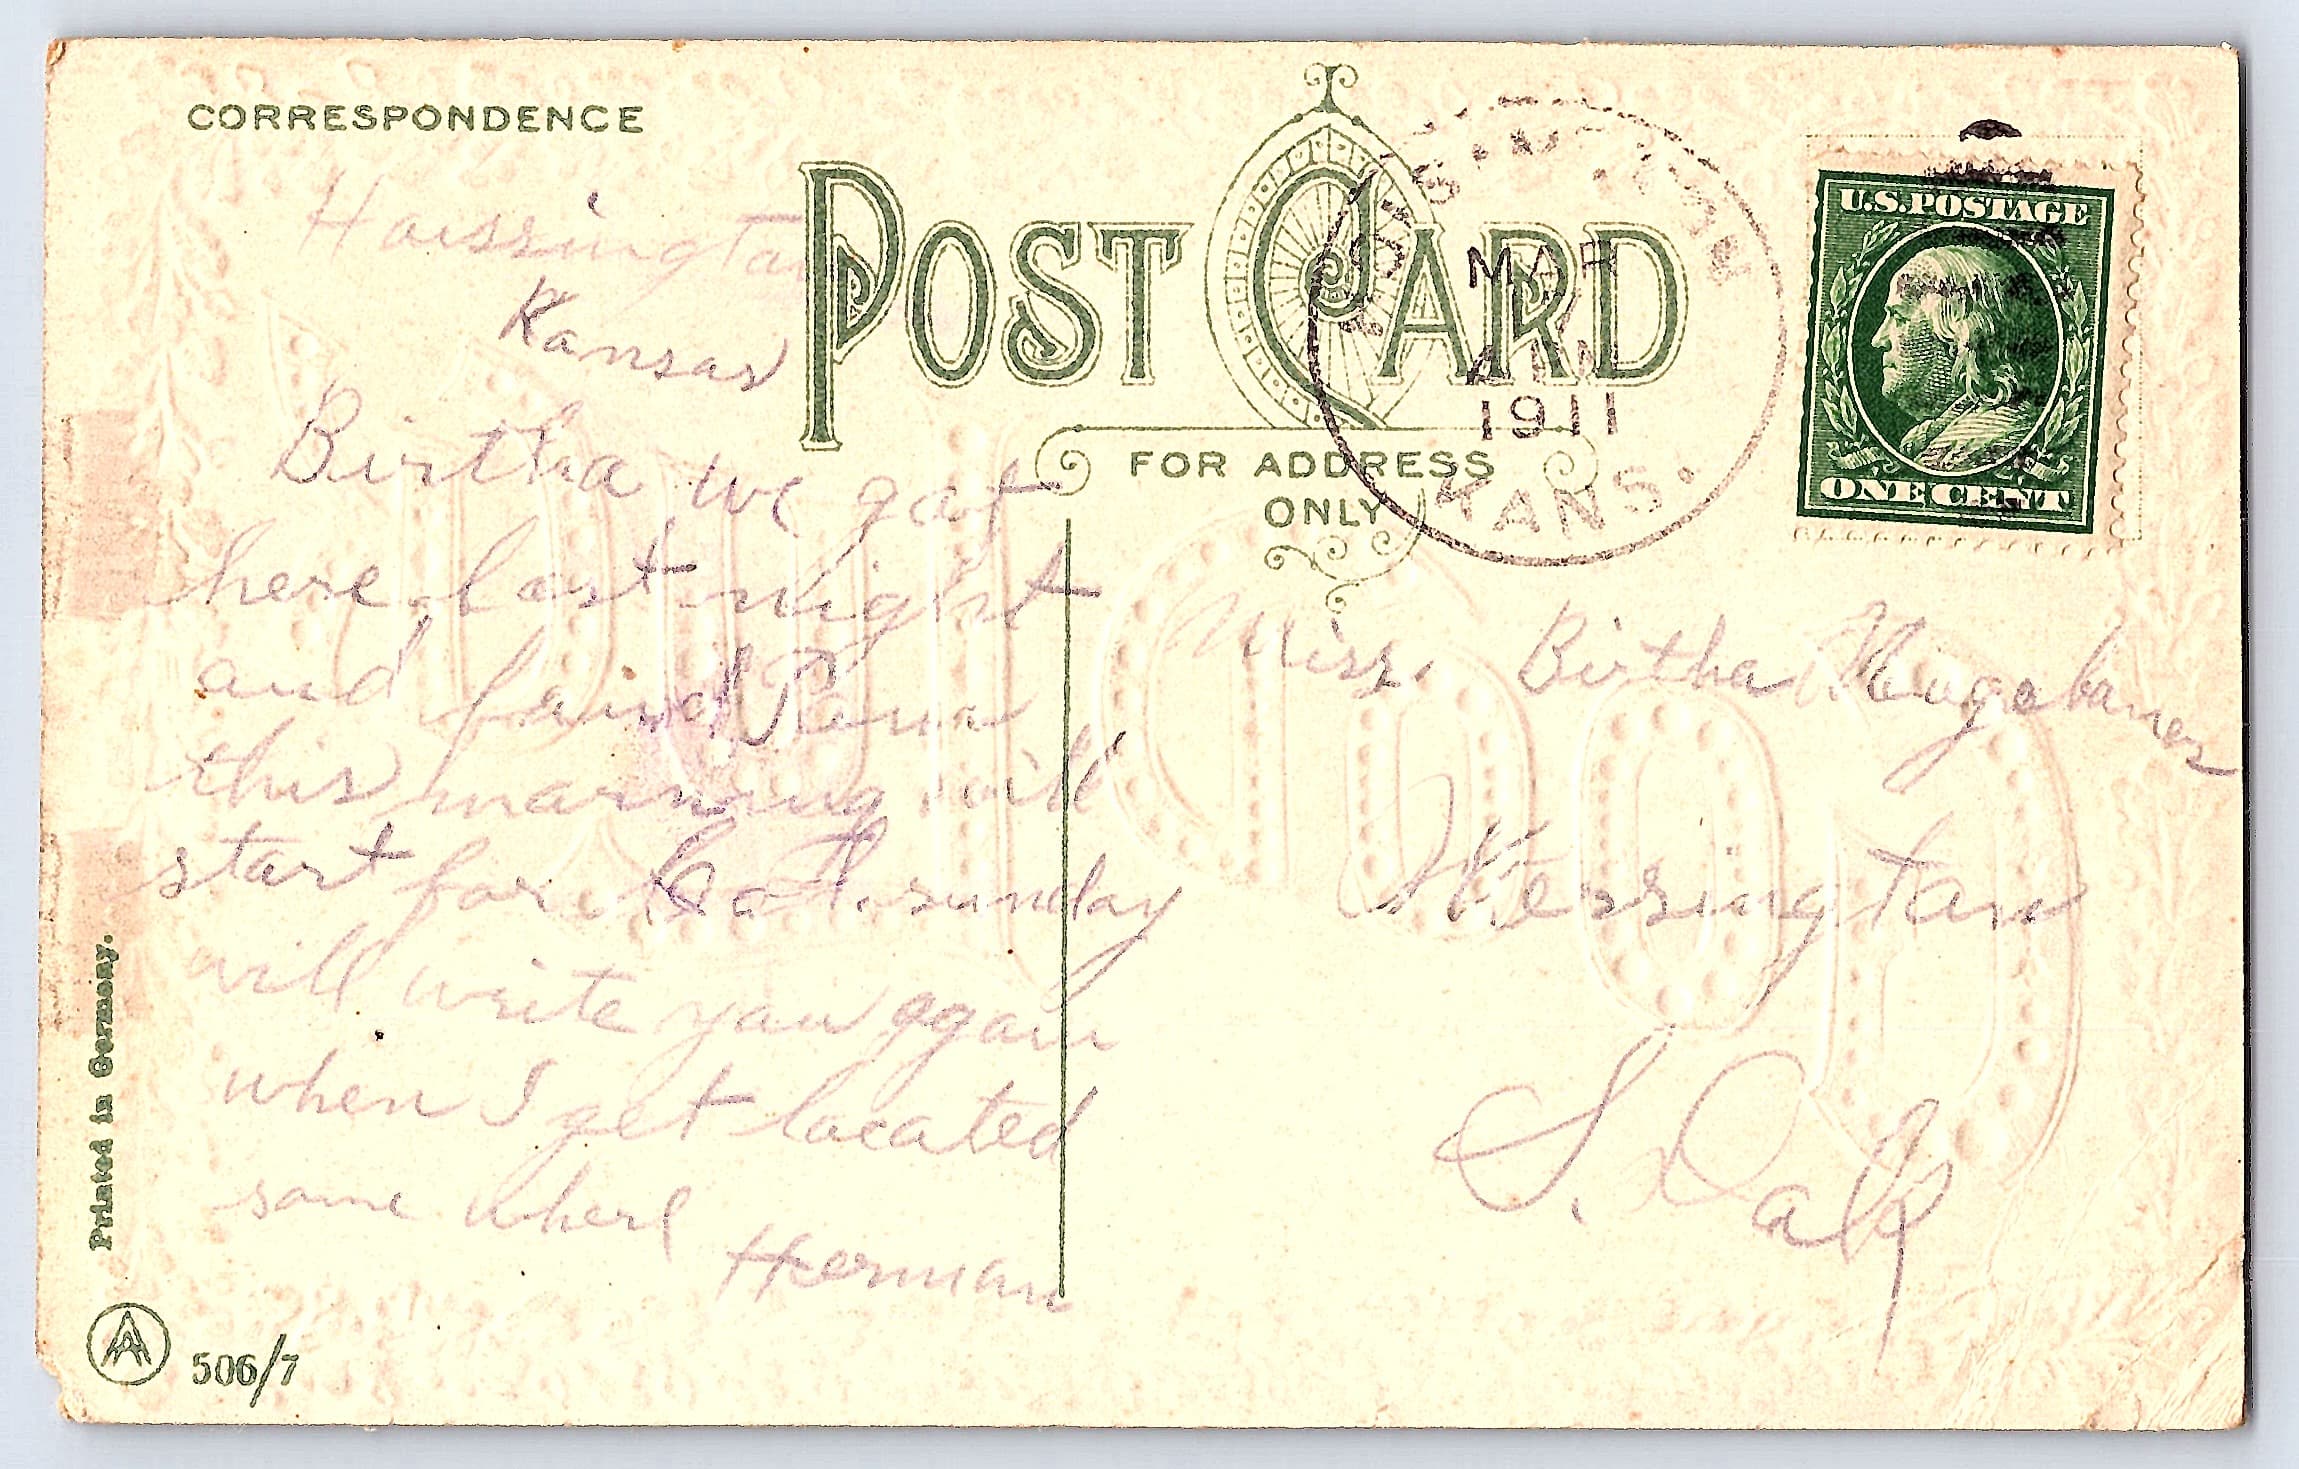 CORRESPONDENCE
POST CARD
FOR ADDRESS
ONLY
MAR
1911
KANS.
U.S. POSTAGE
ONE CENT
Hoissington
Kansas
Birtha we got
here last night
and faind
this morning will
start for sunday
will write you again
when I get located
some where
Herman
Miss. Birtha
Herrington
S. Dak
Printed in Germany.
506/7